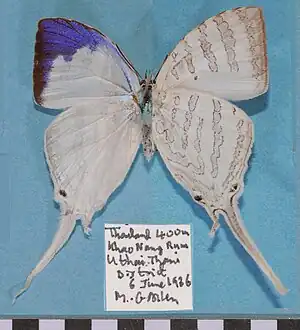 Thailand 400m
Khao Nang Rum
Uthai Thani
District
6 June 1986
M.